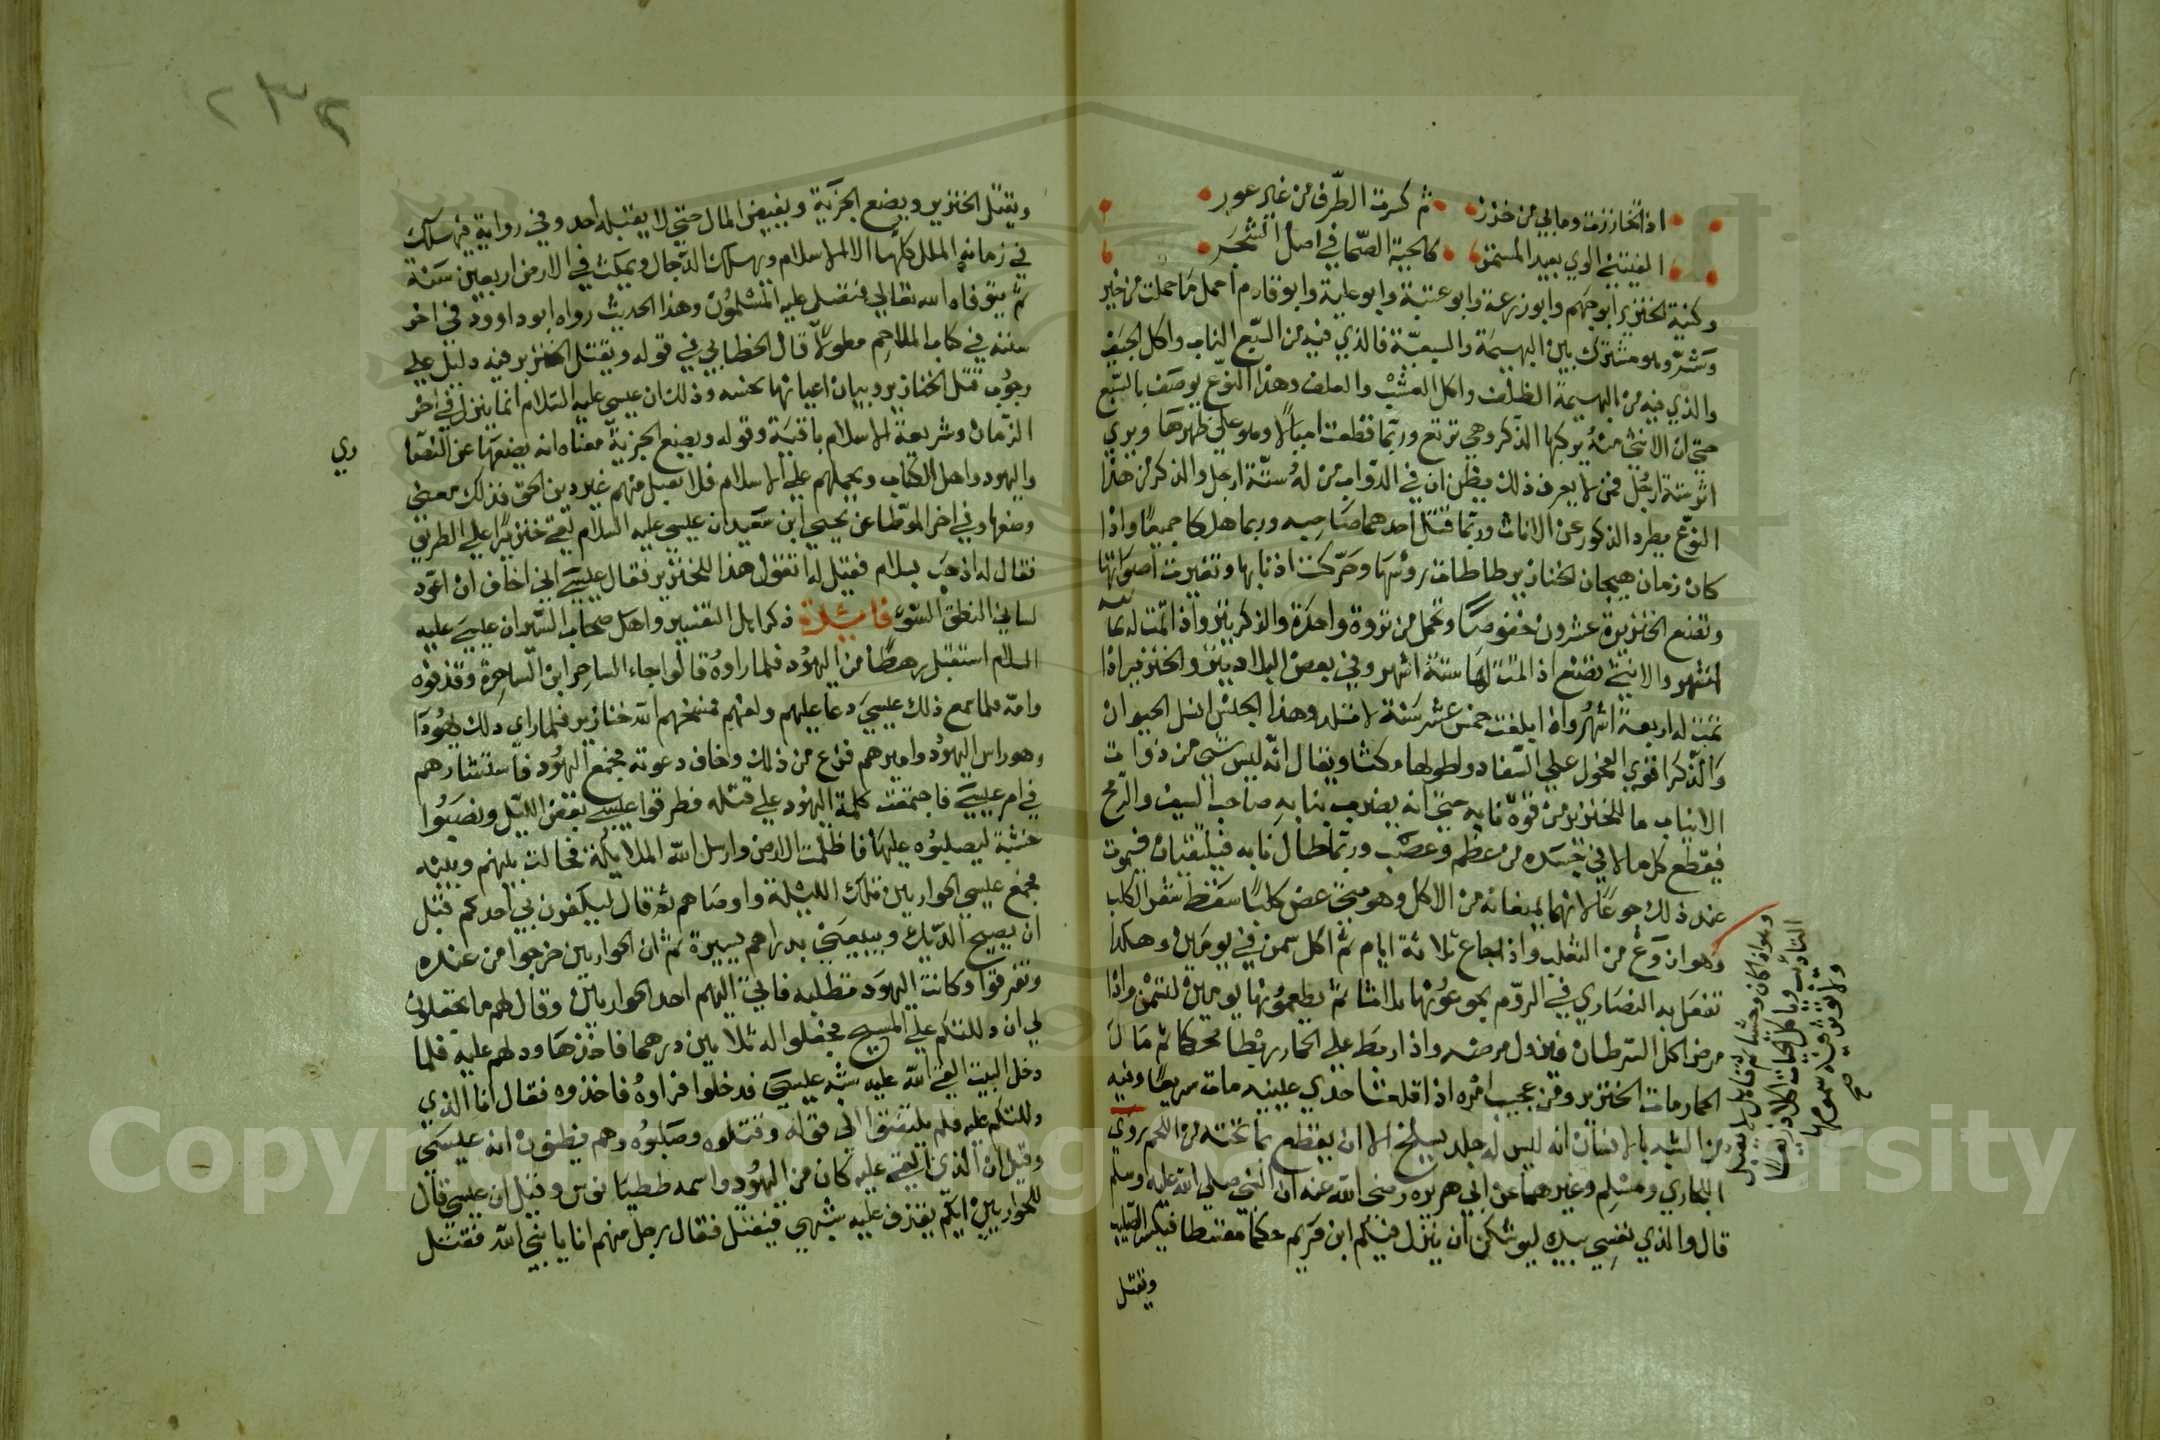 اذا تخازرت وما بي من خزر ثم كسرت الطرف من غير عور
الفيتني الوي بعيد المستمر كالحية الصما في اصل الشجر
وكنية الخنزير ابو جهم وابو زرعة وابو عتبة وابو علية وابو قادم احمل ما حملت من خير
وشر وهو مشترك بين البهيمة والسبعية فالذي فيه من السبع الناب واكل الجيف
والذي فيه من البهيمة الظلف واكل العشب والعلف وهذا النوع يوصف بالشبق
حتى ان الانثى منه يركبها الذكر وهي ترتع وربما قطعت اميالا وهو على ظهرها ويرى
اثر ستة ارجل فمن لا يعرف ذلك يظن ان في الدواب من له ستة ارجل والذكر من هذا
النوع يطرد الذكور عن الاناث وربما قتل احدهما صاحبه وربما هلكا جميعا واذا
كان زمان هيجان الخنازير طاطات روسها وحركت اذنابها وتغيرت اصواتها
وتضع الخنزيرة عشرون خنوصا وتحمل من نزوة واحدة والذكر ينزو اذا تمت له ثمانية
اشهر والانثى تضع اذا تمت لها ستة اشهر وفي بعض البلاد ينزو الخنزير اذا
تمت له اربعة اشهر واذا بلغت خمس عشر سنة لا تلد وهذا الجنس انسل الحيوان
والذكر اقوى الفحول على السفاد واطولها مكثا ويقال انه ليس شي من ذوات
الانياب ما للخنزير من قوة نابه حتى انه يضرب بنابه صاحب السيف والرمح
فيقطع كل ما لاقى جسده من عظم وعصب وربما طال نابه فيلتقيان فيموت
عند ذلك جوعا لانهما يمنعانه من الاكل وهو متى عض كلبا سقط شعر الكلب
وهو اروغ من الثعلب واذا جاع ثلاثة ايام ثم اكل سمن في يومين وهكذا
تفعل به النصاري في الروم يجوعونها ثلاثا ثم يطعمونها يومين لتسمن واذا
مرض اكل السرطان فيزول مرضه واذا ربط على الحمار ربطا محكما ثم بال
الحمار مات الخنزير ومن عجيب امره اذا قلعت احدى عينيه مات سريعا وفيه
من الشبه بالانسان انه ليس له جلد يسلخ الا ان يقطع بما تحته من اللحم روى
البخاري ومسلم وغيرهما عن ابي هريرة رضي الله عنه ان النبي صلى الله عليه وسلم
قال والذي نفسي بيده ليوشكن ان ينزل فيكم ابن مريم حكما مقسطا فيكسر الصليب
ويقتل
ويقتل الخنزير ويضع الجزية ويفيض المال حتى لا يقبله احد وفي رواية فيهلك
في زمانه الملل كلها الا الاسلام ويهلك الدجال ويمكث في الارض اربعين سنة
ثم يتوفاه الله تعالى فيصلي عليه المسلمون وهذا الحديث رواه ابو داوود في اخر
سننه في كتاب الملاحم مطولا قال الخطابي في قوله ويقتل الخنزير فيه دليل على
وجوب قتل الخنازير وبيان اعيانها نجسه وذلك ان عيسى عليه السلام انما ينزل في اخر
الزمان وشريعة الاسلام باقية وقوله ويضع الجزية معناه انه يضعها عن النصا
ري
واليهود واهل الكتاب ويحملهم على الاسلام فلا يقبل منهم غير دين الحق فذلك معنى
وضعها وفي اخر الموطا عن يحيى ابن سعيد ان عيسى عليه السلام لقي خنزيرا على الطريق
فقال له اذهب بسلام فقيل له اتقول هذا للخنزير فقال عيسى اني اخاف ان اعود
لساني النطق السوء فائدة ذكر اهل التفسير واهل صحاب السير ان عيسى عليه
السلام استقبل رهطا من اليهود فلما راوه قالوا جاء الساحر ابن الساحرة وقذفوه
وامه فلما سمع ذلك عيسى دعا عليهم ولعنهم فمسخهم الله خنازير فلما راى ذلك يهودا
وهو راس اليهود واميرهم فزع من ذلك وخاف دعوته فجمع اليهود فاستشارهم
في امر عيسى فاجتمعت كلمة اليهود على قتله فطرقوا عيسى بعض الليل ونصبوا
خشبة ليصلبوه عليها فاظلمت الارض وارسل الله الملايكة فحالت بينهم وبينه
فجمع عيسى الحواريين تلك الليلة واوصاهم ثم قال ليكفرن بي احدكم قبل
ان يصيح الديك ويبيعني بدراهم يسيرة ثم ان الحواريين خرجوا من عنده
وتفرقوا وكانت اليهود تطلبه فاتى اليهم احد الحواريين وقال لهم ما تجعلون
لي ان دللتكم على المسيح فجعلوا له ثلاثين درهما فاخذها ودلهم عليه فلما
دخل البيت القى الله عليه شبه عيسى فدخلوا فراوه فاخذوه فقال انا الذي
دللتكم عليه فلم يلتفتوا الى قوله وقتلوه وصلبوه وهم يظنون انه عيسى
وقيل ان الذي القي عليه كان من اليهود واسمه ططيانوس وقيل ان عيسى قال
للحواريين ايكم يقذف عليه شبهي فيقتل فقال رجل منهم انا يا نبي الله فقتل
٢٣٢
Copyright © King Saud University